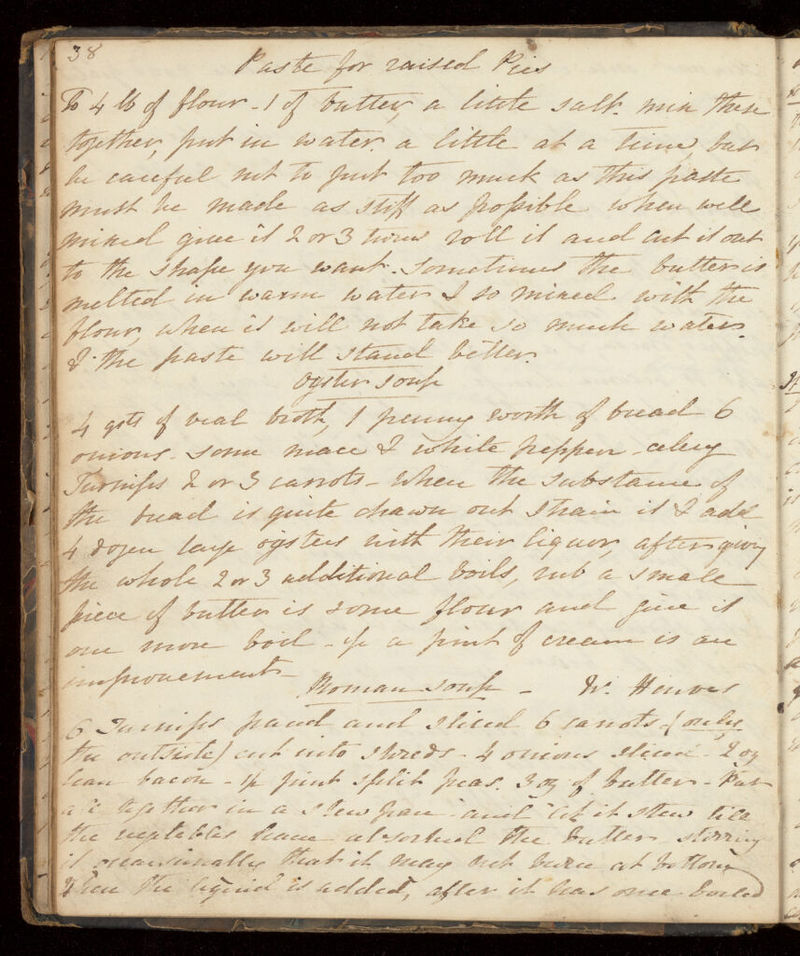 38
Paste for raised Pies
To 4 lb of flour - 1 of butter, a little salt. mix these
together, put in water a little at a time, but
be careful not to put too much as this paste
must be made as stiff as possible when well
mixed give it 2 or 3 turns roll it and cut it out
to the shape you want. Sometimes the butter is
melted in warm water & so mixed with the
flour, when it will not take so much water.
& the paste will stand better.
Oyster Soup
4 qts of veal broth, 1 penny worth of bread 6
onions - some mace & white pepper - celery
Turnips 2 or 3 carrots - when the substance of
the bread is quite drawn out strain it & add
4 dozen large oysters with their liquor, after giving
the whole 2 or 3 additional boils, rub a small
piece of butter is some flour and give it
one more boil - a pint of cream is an
improvement -
Roman soup -
6 Turnips pared and sliced 6 carrots - (only
the outside) cut into shreds - 4 onions sliced - 2 oz
lean bacon - pint split peas. 3 oz of butter - Put
all together in a stew pan and let it stew till
the vegetables have absorbed the butter stirring
it occasionally that it may not burn at bottom
Then the liquid is added, after it has once boiled